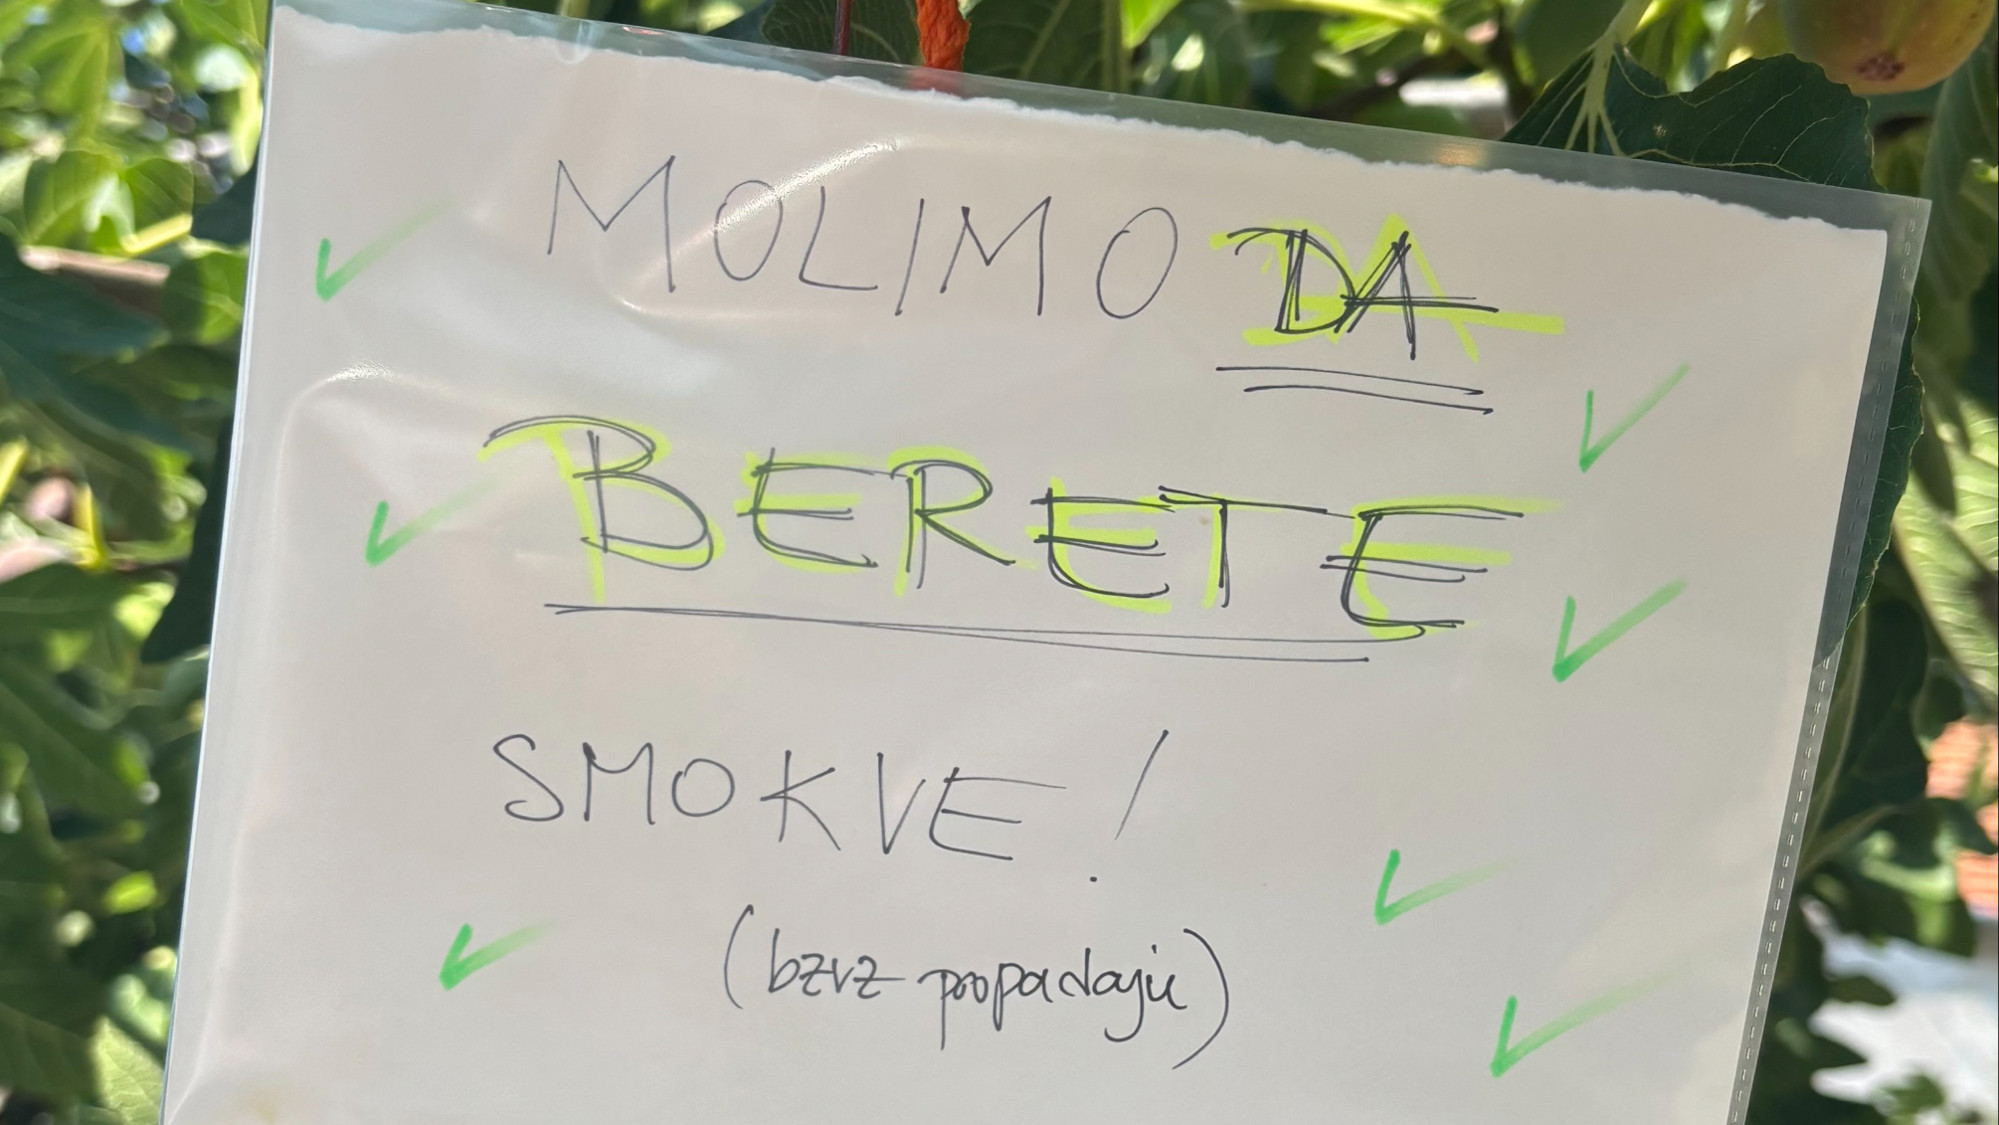 MOLIMO DA
BERETE
SMOKVE!
(bzvz propadaju)